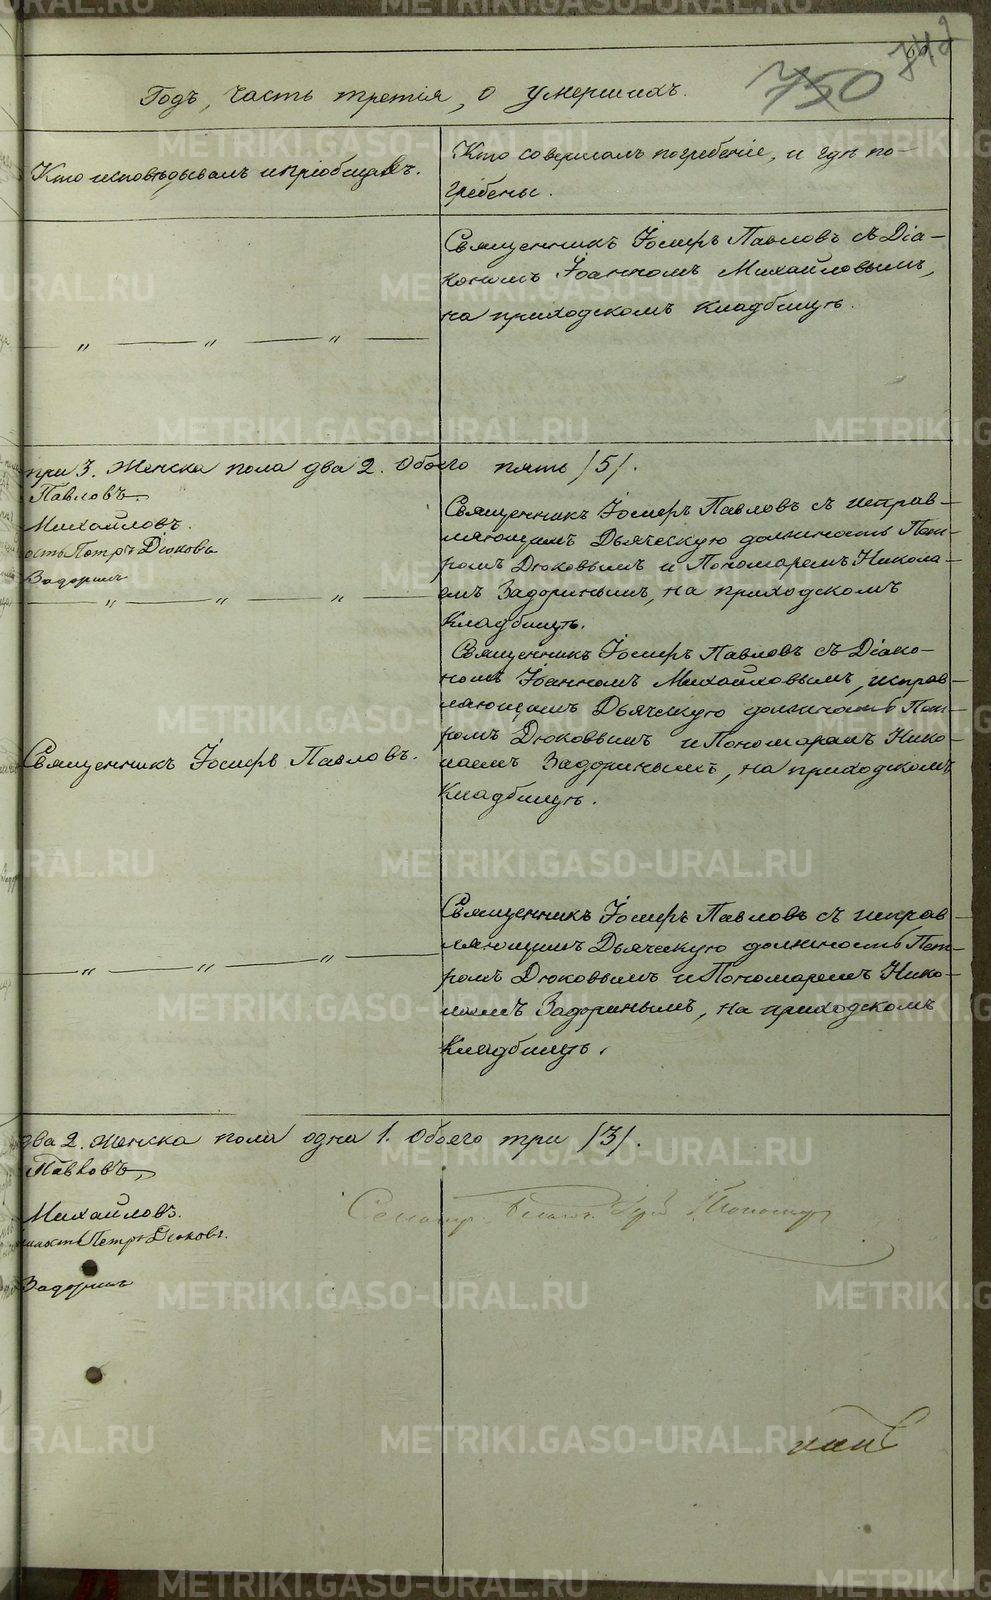 750
Годъ, часть третія, о умершихъ.
Кто исповѣдывалъ и пріобщалъ.
Кто совершалъ погребеніе, и гдѣ по-
гребены.
Священникъ Іосифъ Павловъ съ Діа-
кономъ Іоанномъ Михайловымъ,
на приходскомъ кладбищѣ.
— „ — „ — „ —
три 3. Женска пола два 2. Обоего пять /5/.
Павловъ.
Михайловъ.
ость Петръ Дюковъ
Задоринъ
— „ — „ — „ —
Священникъ Іосифъ Павловъ съ исправ-
ляющимъ Дьяческую должность Пет-
ромъ Дюковымъ и Пономаремъ Никола-
емъ Задоринымъ, на приходскомъ
кладбищѣ.
Священникъ Іосифъ Павловъ.
Священникъ Іосифъ Павловъ съ Діако-
номъ Іоанномъ Михайловымъ, исправ-
ляющимъ Дьяческую должность Пет-
ромъ Дюковымъ и Пономаремъ Нико-
лаемъ Задоринымъ, на приходскомъ
кладбищѣ.
— „ — „ — „ —
Священникъ Іосифъ Павловъ съ исправ-
ляющимъ Дьяческую должность Пет-
ромъ Дюковымъ и Пономаремъ Нико-
лаемъ Задоринымъ, на приходскомъ
кладбищѣ.
два 2. Женска пола одна 1. Обоего три /3/.
Павловъ,
Михайловъ.
ность Петръ Дюковъ.
Задоринъ
METRIKI.GASO-URAL.RU